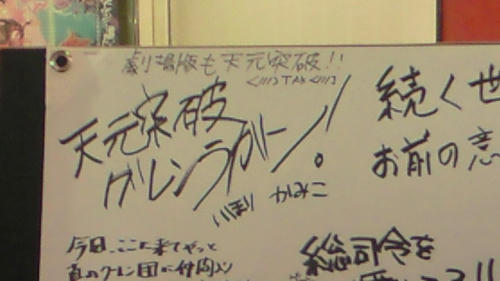 劇場版も天元突破!!
天元突破
グレンラガーン!
続く世
お前の意
かみこ
今日、ここに来てやっと
真のグレン団に仲間入り
総司令を